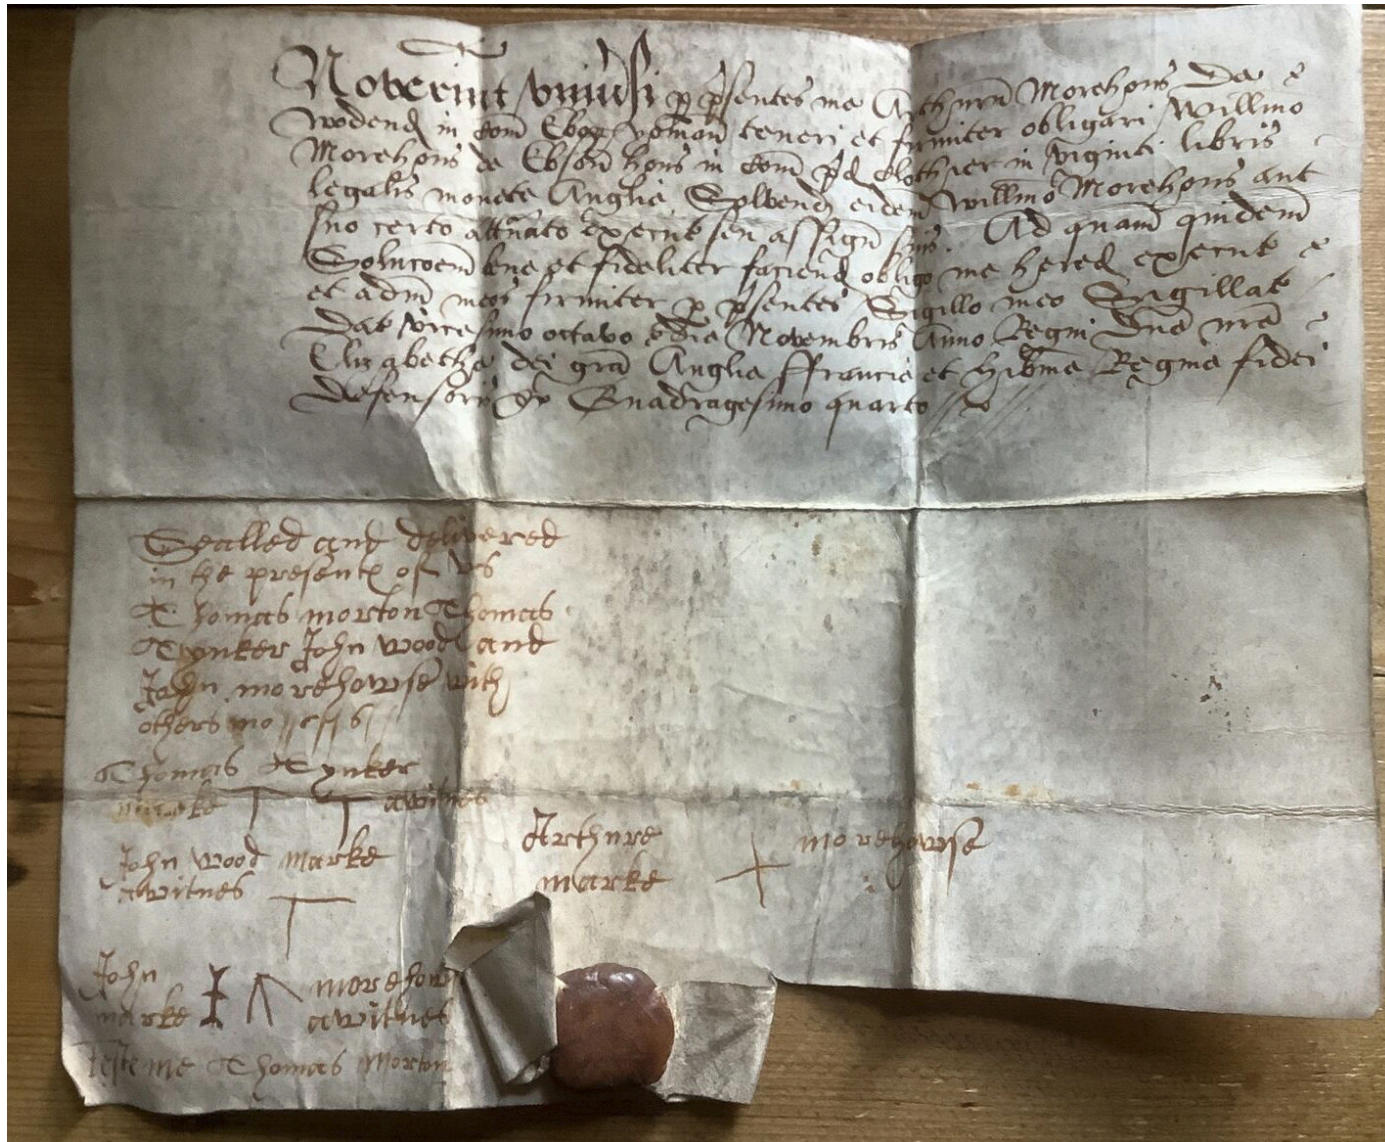 Noverint univ'si p p'sentes me Arthuru Morehous de
in com Ebor yoman teneri et firmiter obligari Willmo
Morehous de hous in com p'd clothier in viginti libris
legalis monete Anglie Solvend eidem Willmo Morehous aut
suo certo attornato execut seu assign suis. Ad quam quidem
Soluco'em bene et fideliter faciend obligo me hered execut
et adm meos firmiter p p'sentes Sigillo meo Sigillat
Dat vicesimo octavo die Novembris Anno Regni D'ne n're
Elizabethe dei gra Anglie ffrancie et Hib'nie Regine fidei
defensor' &c Quadragesimo quarto
Sealled and delivered
in the presenc of us
Thomas morton Thomas
Tynker John wood and
John morehowse with
others mo
Thomas Tynker
marke T T a witnes
John wood marke
a witnes T
Arthure + morehowse
marke
John morehows
marke a witnes
Teste me Thomas Morton